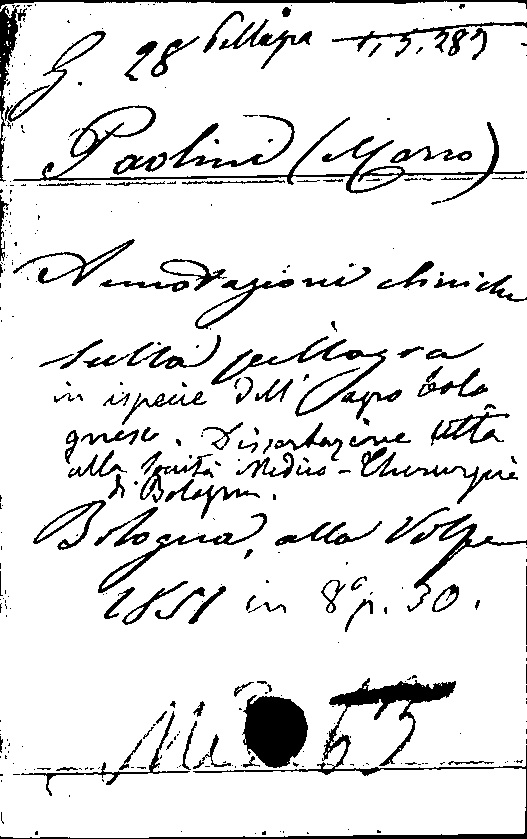 G. 28 Pellagra
Paolini (Marco)
Annotazioni cliniche
sulla pellagra
in ispecie dell' agro bolo
gnese. Dissertazione letta
alla Società Medico-Chirurgica
di Bologna.
Bologna, alla Volpe
1851 in 8° p. 30.